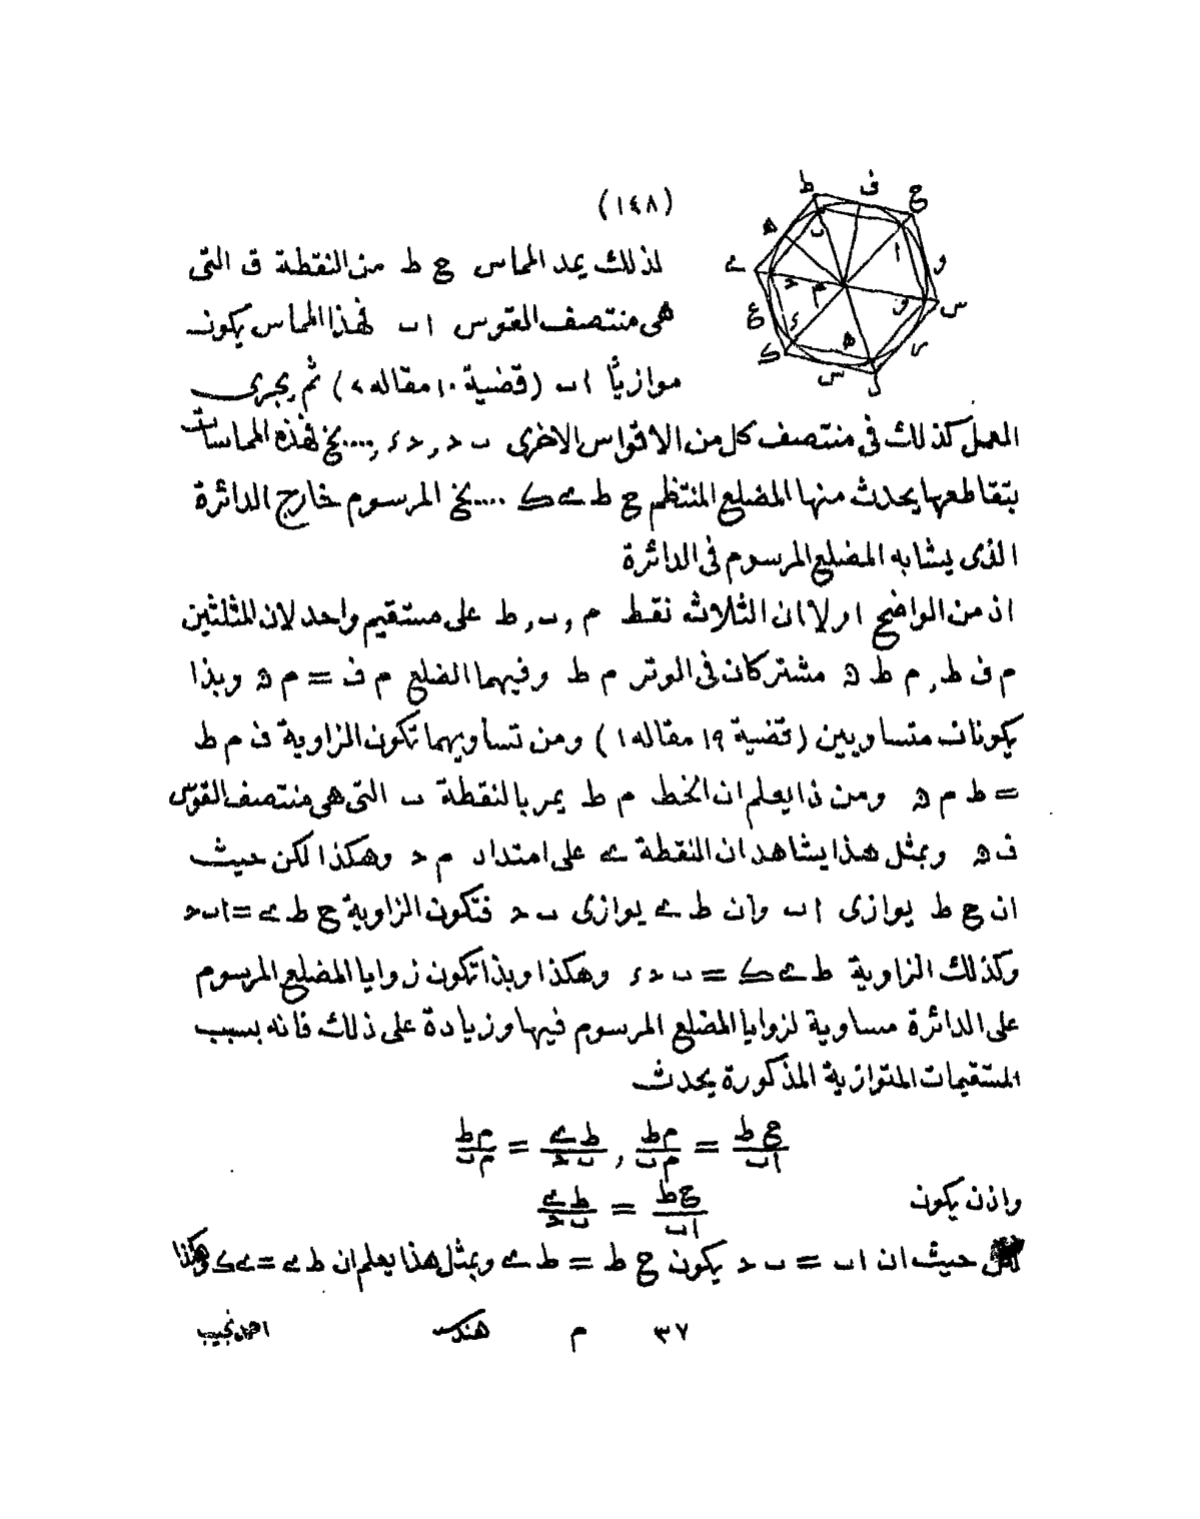 (١٤٨)
لذلك يمد المماس ح ط من النقطة ق التى
هى منتصف القوس ا ب فهذا المماس يكون
موازيًا ا ب (قضية ١٠ مقاله ٢) ثم يجرى
العمل كذلك فى منتصف كل من الاقواس الاخرى ب د , د ء , .... الخ فهذه المماسات
بتقاطعها يحدث منها المضلع المنتظم ح ط ے ك .... الخ المرسوم خارج الدائرة
الذى يشابه المضلع المرسوم فى الدائرة
اذ من الواضح اولا ان الثلاث نقط م , ب , ط على مستقيم واحد لان المثلثين
م ف ط , م ط ﻫ مشتركان فى الوتر م ط وفيهما الضلع م ف = م ﻫ وبذا
يكونان متساويين (قضية ١٩ مقاله ١) ومن تساويهما تكون الزاوية ف م ط
= ط م ﻫ ومن ذا يعلم ان الخط م ط يمر بالنقطة ب التى هى منتصف القوس
ف ﻫ وبمثل هذا يشاهد ان النقطة ے على امتداد م د وهكذا لكن حيث
ان ح ط يوازى ا ب وان ط ے يوازى ب د فتكون الزاوية ح ط ے = ا ب د
وكذلك الزاوية ط ے ك = ب د ء وهكذا وبذا تكون زوايا المضلع المرسوم
على الدائرة مساوية لزوايا المضلع المرسوم فيها وزيادة على ذلك فانه بسبب
المستقيمات المتوازية المذكورة يحدث
ح ط / ا ب = م ط / م ب , ط ے / ب د = م ط / م ب
واذن يكون ح ط / ا ب = ط ے / ب د
حيث ان ا ب = ب د يكون ح ط = ط ے وبمثل هذا يعلم ان ط ے = ے ك وهكذا
٣٧ م هندسه احمد نجيب